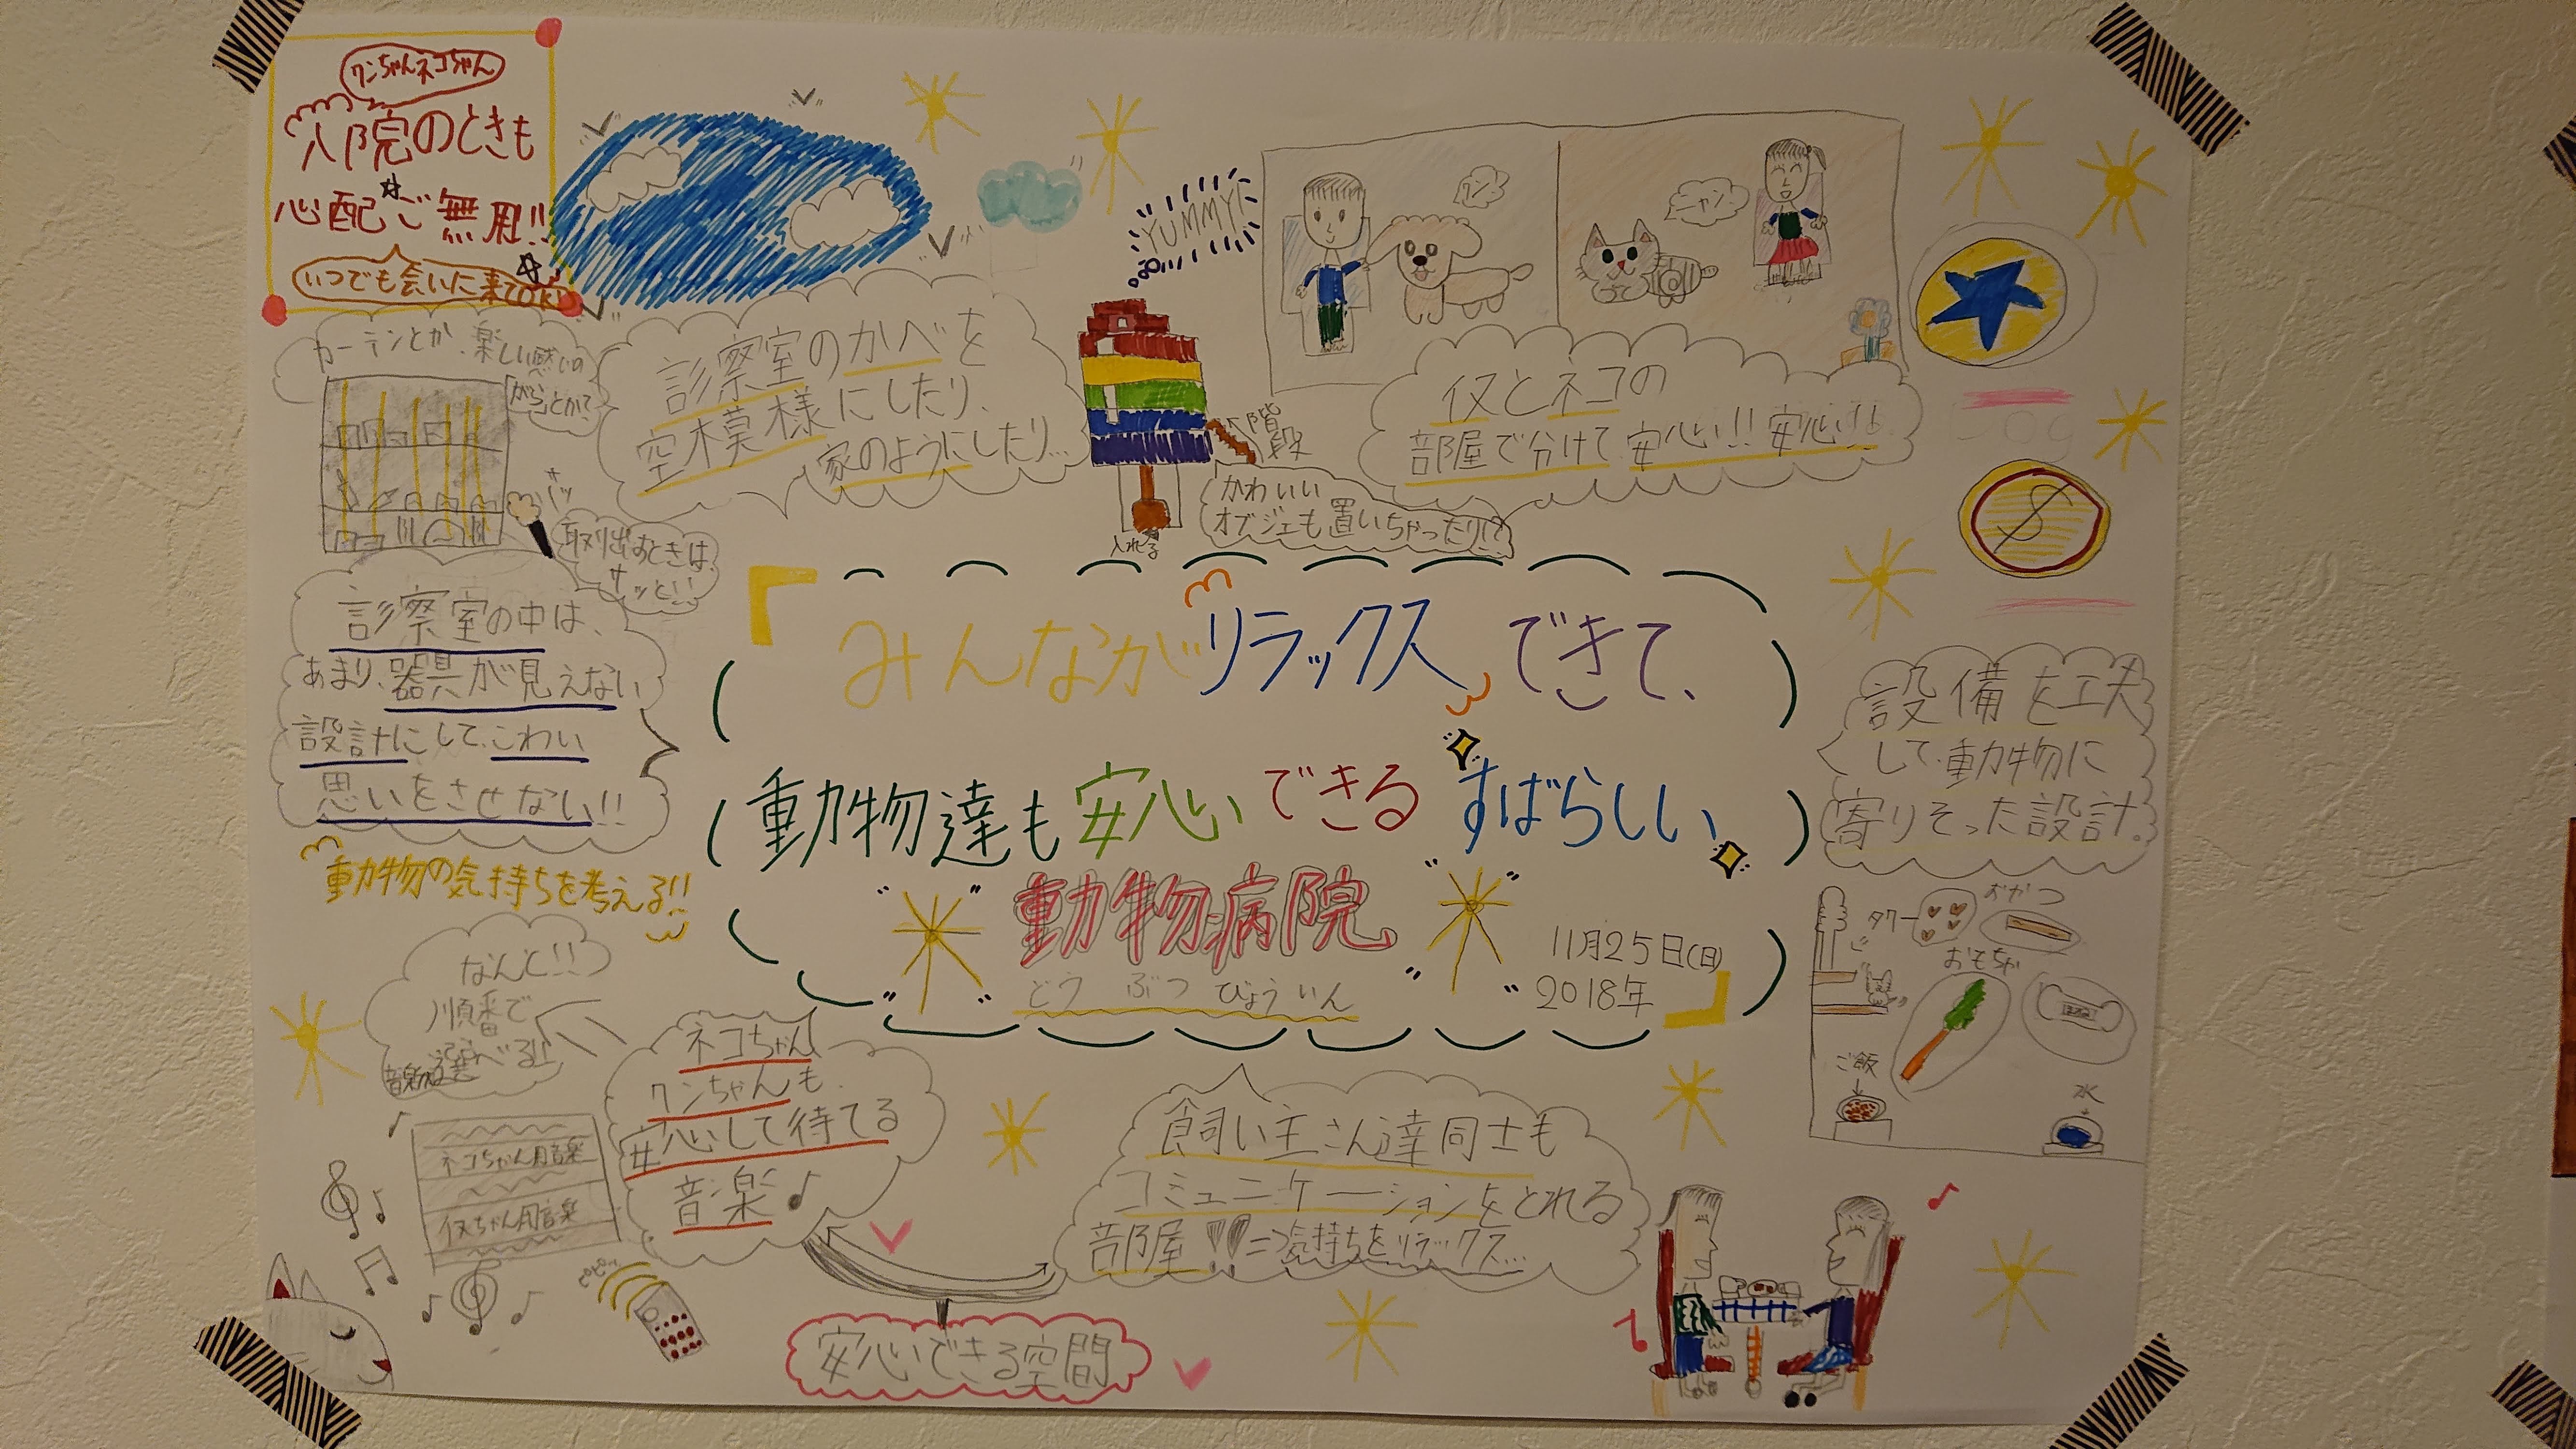 ワンちゃんネコちゃん
入院のときも
心配ご無用!!
いつでも会いに来てOK!
カーテンとか、楽しい感じの
がらとかで
取り出すときは、
サッと!!
サッ
診察室のかべを
空模様にしたり、
家のようにしたり…
YUMMY!
階段
入れる
かわいい
オブジェも置いちゃったり!?
ワン
ニャン
イヌとネコの
部屋で分けて安心!!安心!!
診察室の中は、
あまり、器具が見えない
設計にして、こわい
思いをさせない!!
動物の気持ちを考える!!
「みんながリラックスできて、
動物達も安心できるすばらしい
動物病院
どうぶつびょういん
11月25日(日)
2018年」
設備を工夫
して、動物に
寄りそった設計。
タワー
おやつ
おもちゃ
ご飯
水
なんと!!
順番で
音楽選べる!!
ネコちゃん
ワンちゃんも
安心して待てる
音楽♪
ネコちゃん用音楽
イヌちゃん用音楽
ピピッ
飼い主さん達同士も
コミュニケーションをとれる
部屋!!⇒気持ちをリラックス…
安心できる空間